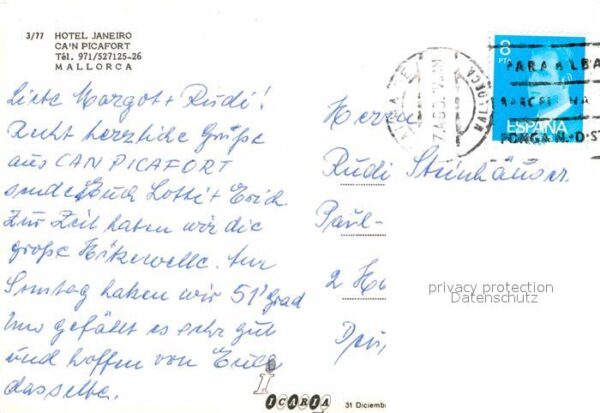 3/77 HOTEL JANEIRO
CA'N PICAFORT
Tél. 971/527125-26
MALLORCA
Liebe Margot + Rudi!
Recht herzliche Grüße
aus CAN PICAFORT
senden Euch Lotti + Erich.
Zur Zeit haben wir die
große Hitzewelle. Am
Sonntag haben wir 51' Grad
Uns gefällt es sehr gut
und hoffen von Euch
dasselbe.
Herrn
Rudi Steinhäuser
Paul-
2
8 PTA
ESPAÑA
MALLORCA
PARA
BARCELONA
PONGA N.D.ST
privacy protection
Datenschutz
ICARIA
31 Diciemb